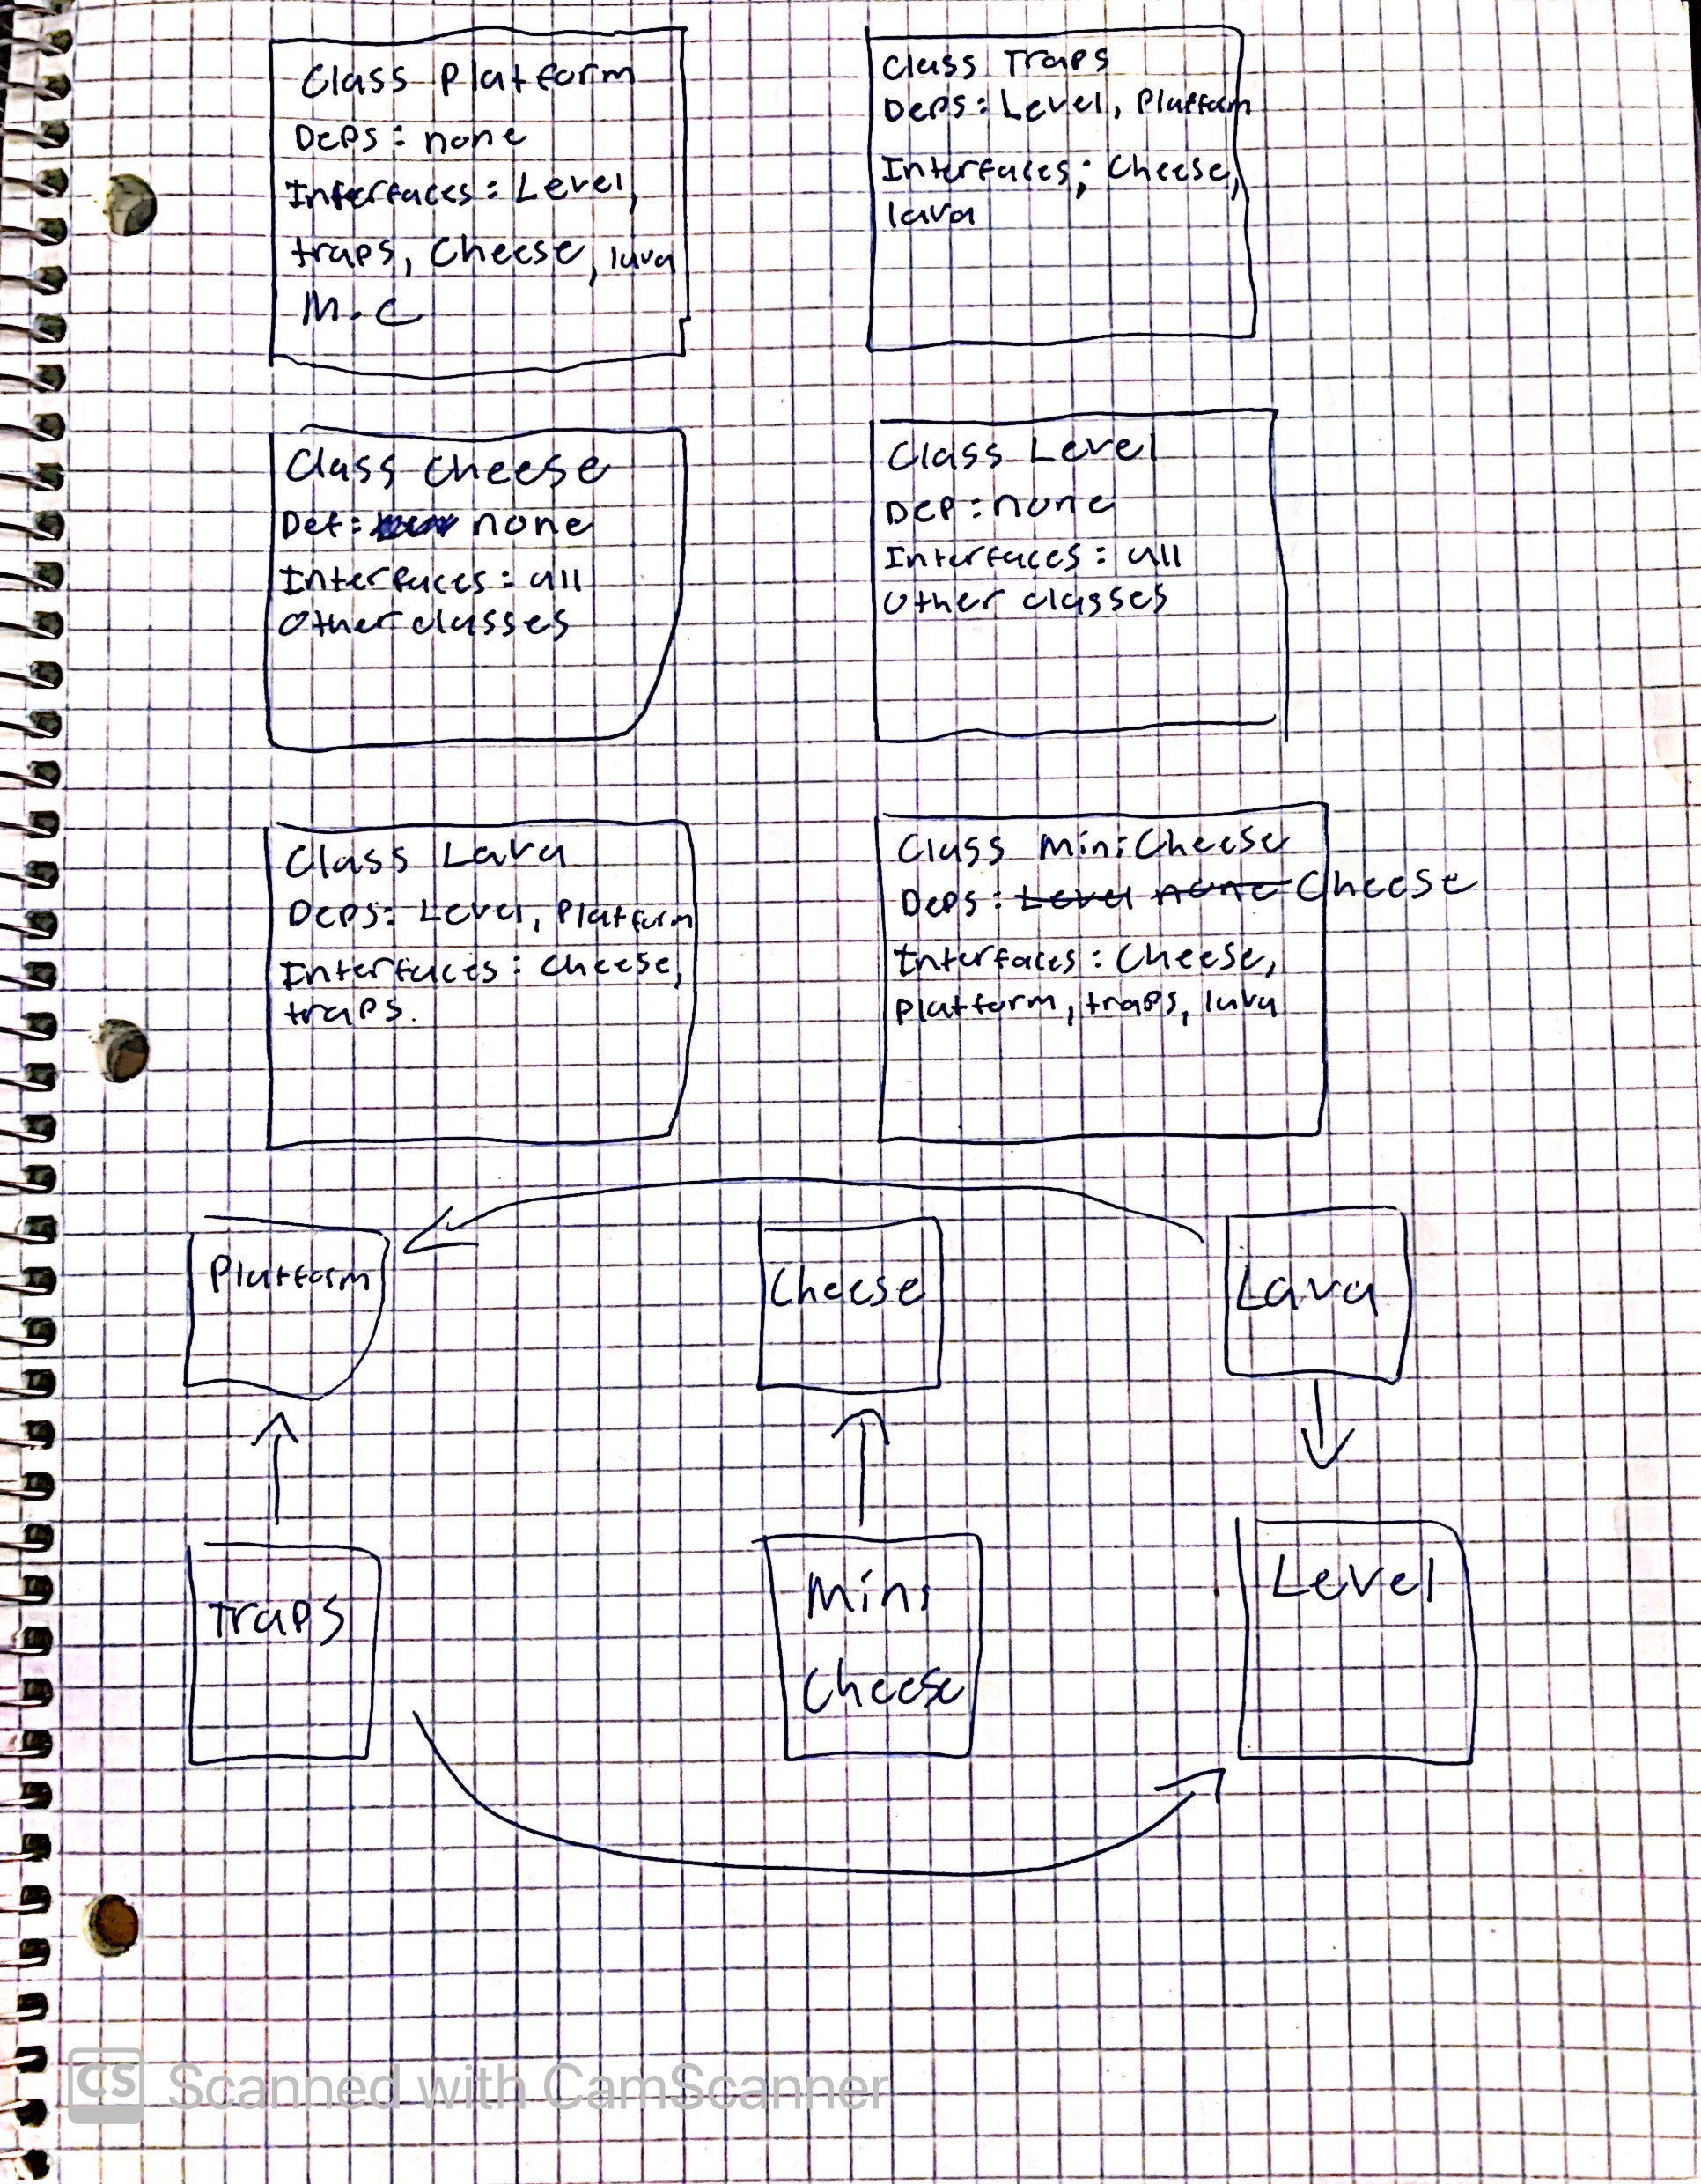 Class Platform
Deps: none
Interfaces: Level,
traps, Cheese, lava
M.C
Class Traps
Deps: Level, Platform
Interfaces: Cheese,
lava
Class Cheese
Def: none
Interfaces: all
Other classes
Class Level
Dep: none
Interfaces: all
Other classes
Class Lava
Deps: Level, Platform
Interfaces: Cheese,
traps.
Class MiniCheese
Deps: Level none Cheese
Interfaces: Cheese,
Platform, traps, lava
Platform
Cheese
Lava
Traps
Mini
Cheese
Level
CS Scanned with CamScanner